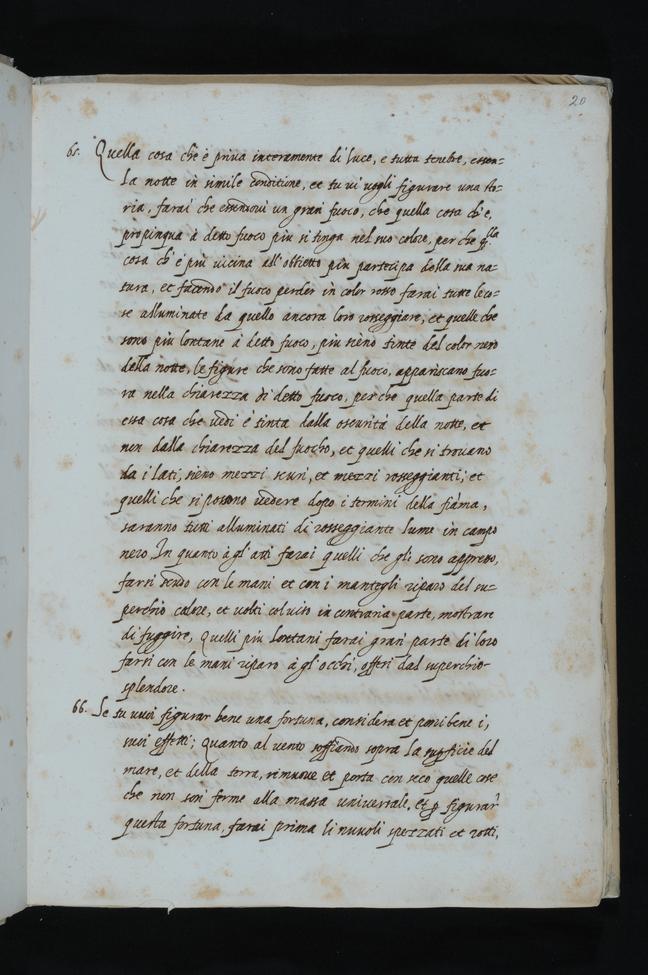 20
65. Quella cosa che è priva interamente di luce, e tutta tenebre, essen=
La notte in simile conditione, et tu vi vogli figurare una sto=
ria, farai che essendovi un gran fuoco, che quella cosa ch'è,
propinqua à detto fuoco più si tinga nel suo colore, perche qlla
cosa ch'è più vicina all'obbietto più partecipa della sua na=
tura, et facendo il fuoco pender in color rosso farai tutte le co=
se alluminate da quello ancora loro rosseggiare, et quelle che
sono più lontane à detto fuoco, più sieno tinte del color nero
della notte, le figure che sono fatte al fuoco, appariscano scu=
re nella chiarezza di detto fuoco, perche quella parte di
essa cosa che vedi è tinta dalla oscurità della notte, et
non dalla chiarezza del fuocho, et quelli che si trovano
da i lati, sieno mezzi scuri, et mezzi rosseggianti; et
quelli che si possono vedere dopo i termini della fiama,
saranno tutti alluminati di rosseggiante lume in campo
nero. In quanto à gl'atti farai quelli che gli sono appresso,
farsi scudo con le mani et con i mantegli riparo del su=
perchio calore, et volti col viso in contraria parte, mostrare
di fuggire, Quelli più lontani farai gran parte di loro
farsi con le mani riparo à gl'occhi, offesi dal superchio
splendore.
66. Se tu vuoi figurar bene una fortuna, considera et poni bene i,
suoi effetti; Quanto al vento soffiando sopra la supficie del
mare, et della terra, rimuove et porta con seco quelle cose
che non son ferme alla massa universale, et p figurar
questa fortuna, farai prima li nuvoli spezzati et rotti,